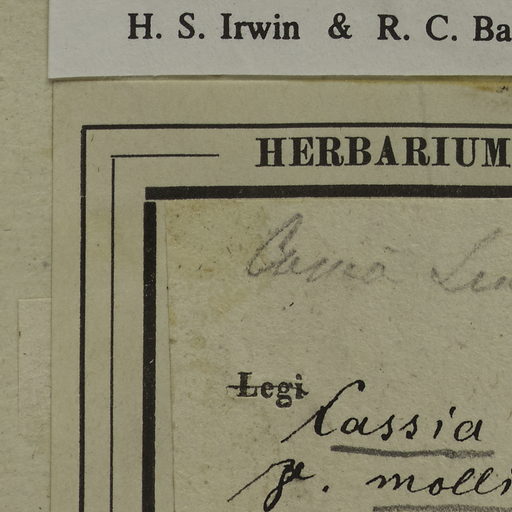 H. S. Irwin & R. C. Ba
HERBARIUM
Legi
Cassia
molli